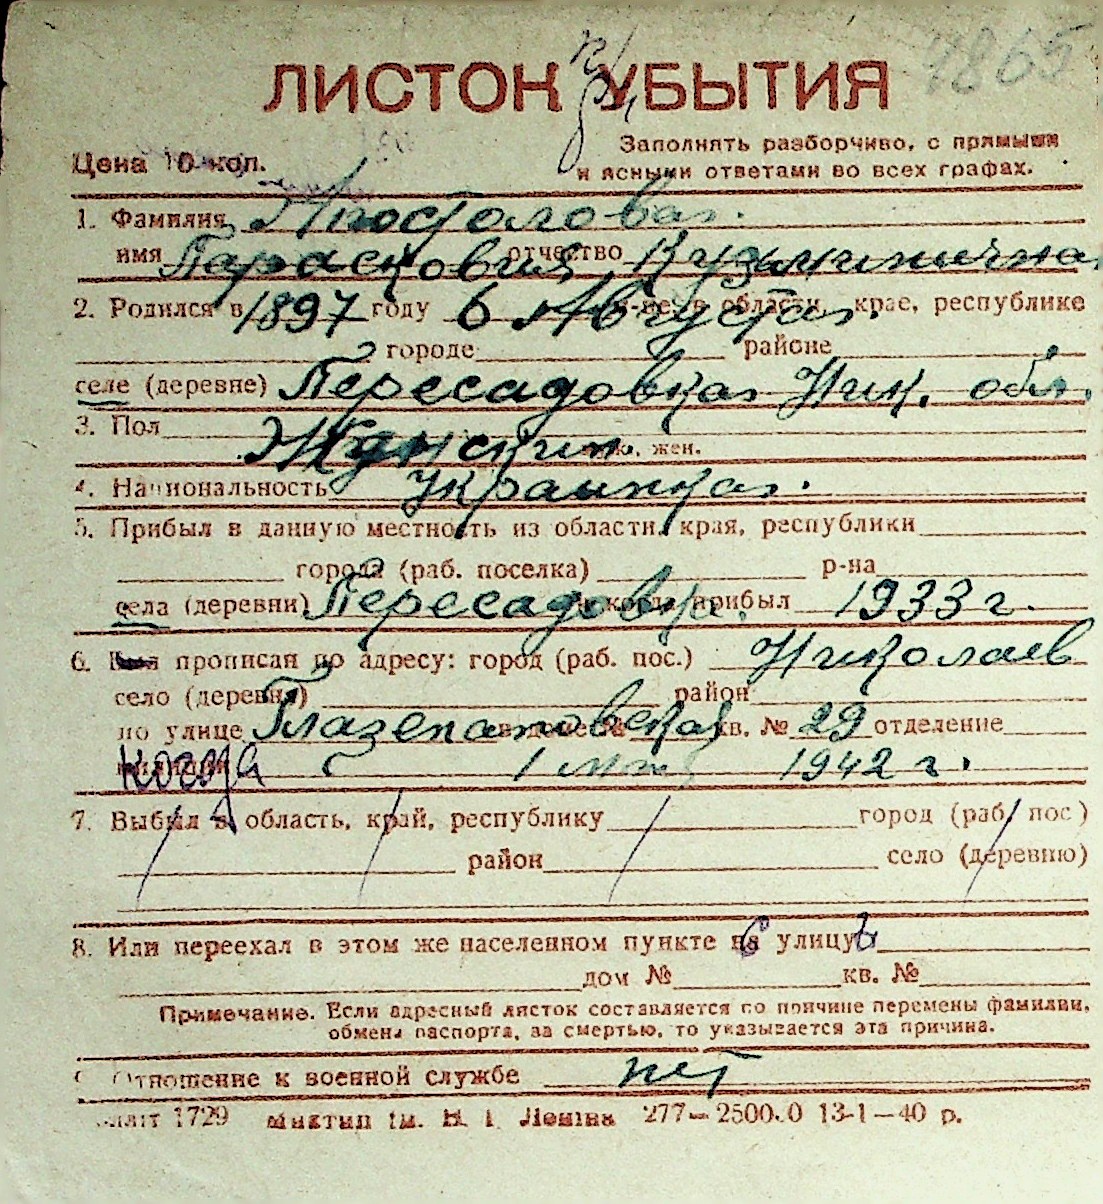 4865
ЛИСТОК УБЫТИЯ
Цена 10 коп.
Заполнять разборчиво, с прямыми
и ясными ответами во всех графах.
1. Фамилия Апостолова.
имя Парасковия отчество Кузьминична
2. Родился в 1897 году 6 Августа. м-це, в области, крае, республике
городе районе
селе (деревне) Пересадовка Ник. обл.
3. Пол Женский муж., жен.
4. Национальность Украинка.
5. Прибыл в данную местность из области, края, республики
города (раб. поселка) р-на
села (деревни) Пересадовка. и когда прибыл 1933 г.
6. Был прописан по адресу: город (раб. пос.) Николаев
село (деревня) район
по улице Глазенаповская в доме № кв. № 29 отделение
милиции когда с 1 мая 1942 г.
7. Выбыл в область, край, республику город (раб. пос.)
район село (деревню)
8. Или переехал в этом же населенном пункте на улицу
дом № кв. №
Примечание. Если адресный листок составляется по причине перемены фамилии,
обмена паспорта, за смертью, то указывается эта причина.
9. Отношение к военной службе нет
1729 Миктип ім. В. І. Леніна 277—2500.0 13-1—40 р.